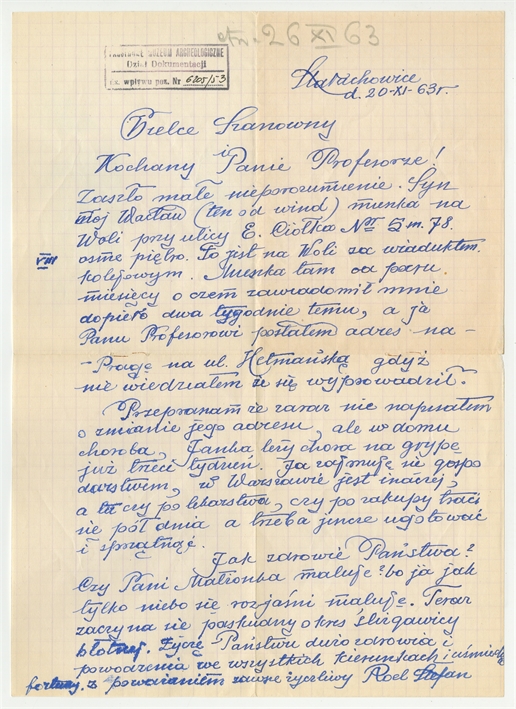 otrz. 26 XI 63
PAŃSTWOWE MUZEUM ARCHEOLOGICZNE
Dział Dokumentacji
L. wpływu pas. Nr 6205/53
Starachowice
d. 20-XI-63r.
Wielce Szanowny
i
Kochany Panie Profesorze!
Zaszło małe nieporozumienie. Syn
mój Wacław (ten od wind) mieszka na
Woli przy ulicy E. Ciołka No 5 m. 78.
VIII ósme piętro. To jest na Woli za wiaduktem
kolejowym. Mieszka tam od paru
miesięcy o czem zawiadomił mnie
dopiero dwa tygodnie temu, a ja
Panu Profesorowi posłałem adres na-
- Pragę na ul. Hetmańską gdyż
nie wiedziałem że się wyprowadził.
Przepraszam że zaraz nie napisałem
o zmianie jego adresu, ale w domu
choroba, Janka leży chora na grypę
już trzeci tydzień. Ja zajmuję się gospo
darstwem, w Warszawie jest inaczej,
a tu czy po lekarstwa, czy po zakupy traci
się pół dnia a trzeba jeszcze ugotować
i sprzątnąć.
Jak zdrowie Państwa?
Czy Pani Małżonka maluje? bo ja jak
tylko niebo się rozjaśni maluję. Teraz
zaczyna się paskudny okres ślizgawicy
błotnej. Życzę Państwu dużo zdrowia i
powodzenia we wszystkich kierunkach i uśmiechu
fortuny. z poważaniem zawsze życzliwy Stefan